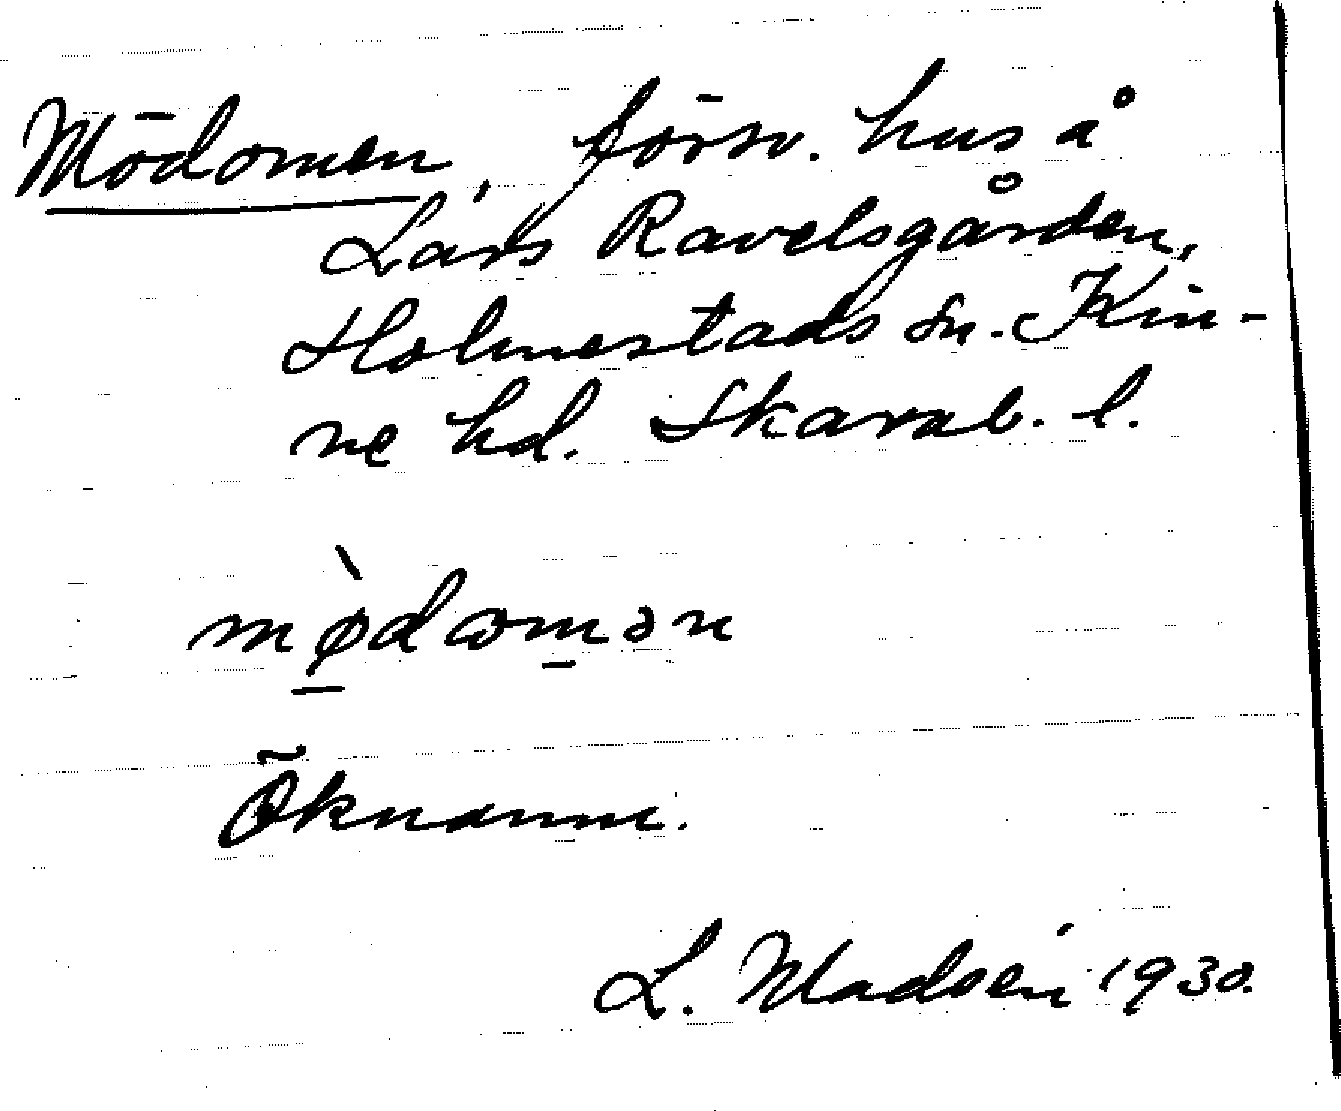 Mödomen, försv. hus å
Lars Ravelsgården,
Holmestads sn. Kin-
ne hd. Skarab. l.
mø̀dɷmən
Öknamn.
L. Madsén 1930.